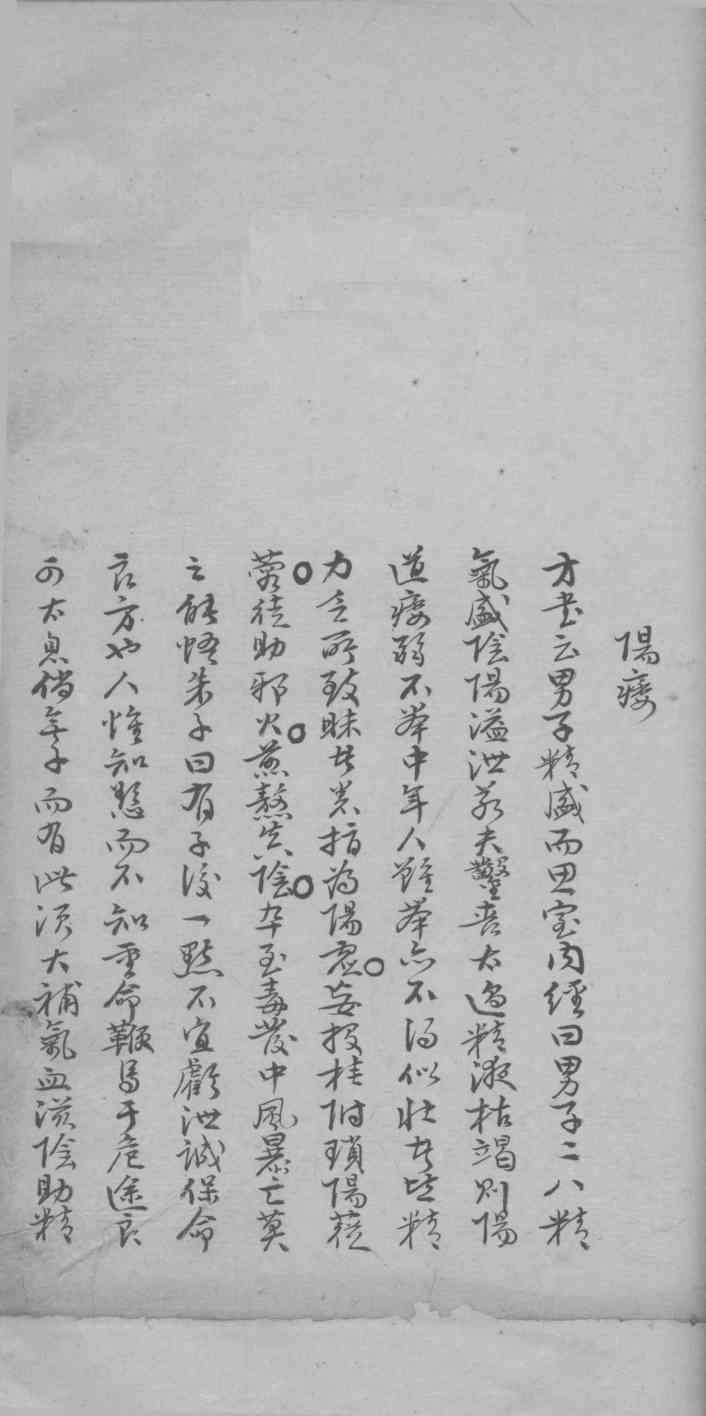 陽痿
方書云男子精盛而思室內經曰男子二八精
氣盛陰陽溢泄若夫鑿喪太過精液枯竭則陽
道痿弱不舉中年人雖舉亦不得似壯者皆精
力乏所致昧者器指為陽虛妄投桂附瑣陽蓯
蓉徒助邪火煎熬真陰卒至毒發中風暴亡莫
之能悟朱子曰有子後一點不宜虧泄誠保命
良方也人惟知慾而不知重命鞭馬于危途良
可太息倘無子而有此須大補氣血滋陰助精